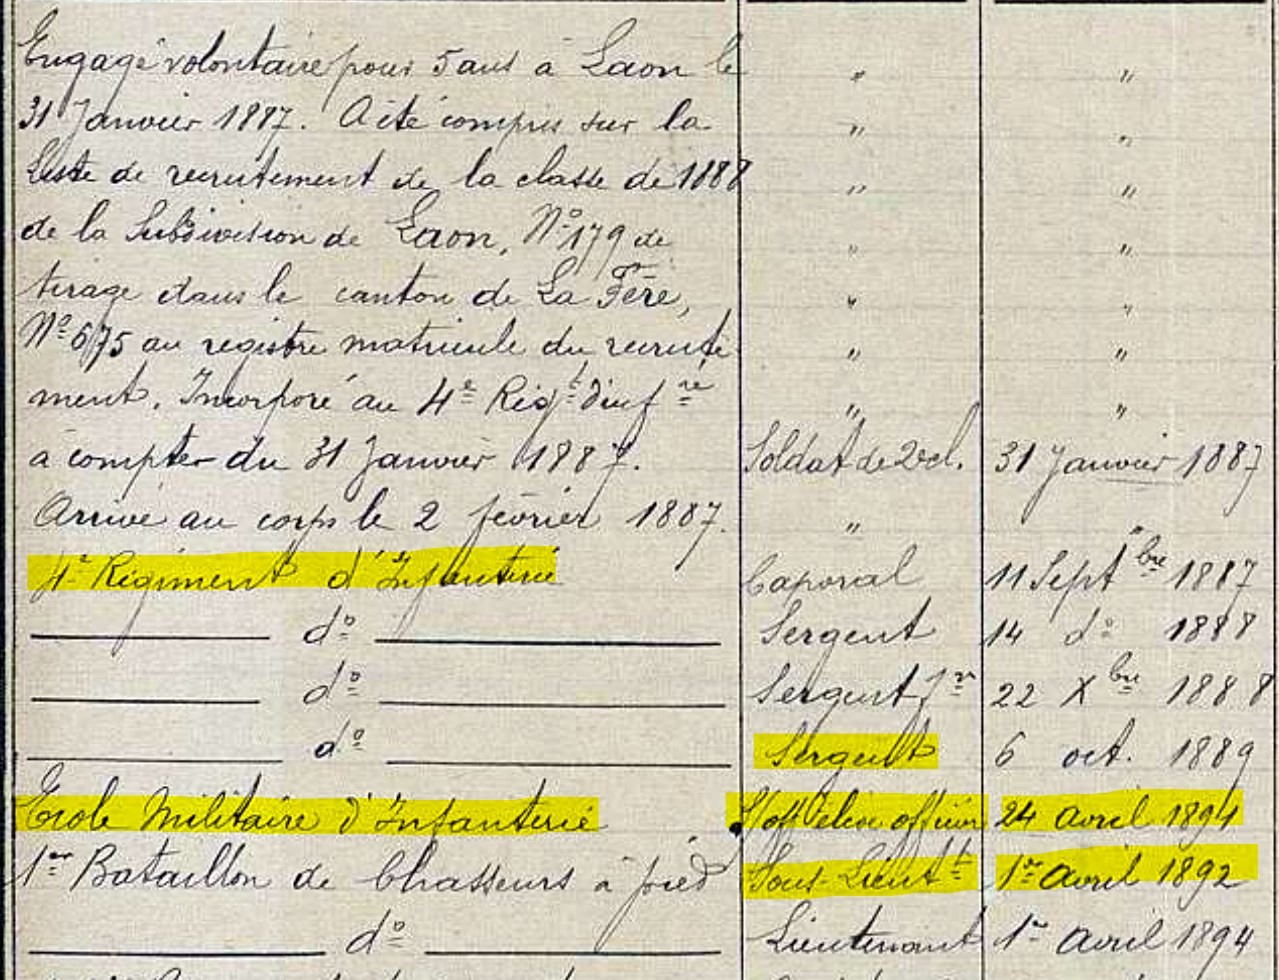 Engagé volontaire pour 5 ans à Laon le " "
31 Janvier 1887. A été compris sur la " "
Liste de recrutement de la classe de 1888 " "
de la Subdivision de Laon, Nº 179 de " "
tirage dans le canton de La Fère, " "
Nº 675 au registre matricule du recrute " "
ment. Incorporé au 4e Régt d'inf rie " "
à compter du 31 Janvier 1887. Soldat de 2e cl. 31 Janvier 1887
Arrivé au corps le 2 février 1887. " "
4e Régiment d'Infanterie Caporal 11 Sept bre 1887
dº Sergent 14 dº 1888
dº Sergent 22 X bre 1888
dº Sergent 6 oct. 1889
Ecole Militaire d'Infanterie S/off élève officier 24 avril 1891
1er Bataillon de Chasseurs à pied Sous-Lieutt 1er avril 1892
dº Lieutenant 1er avril 1894